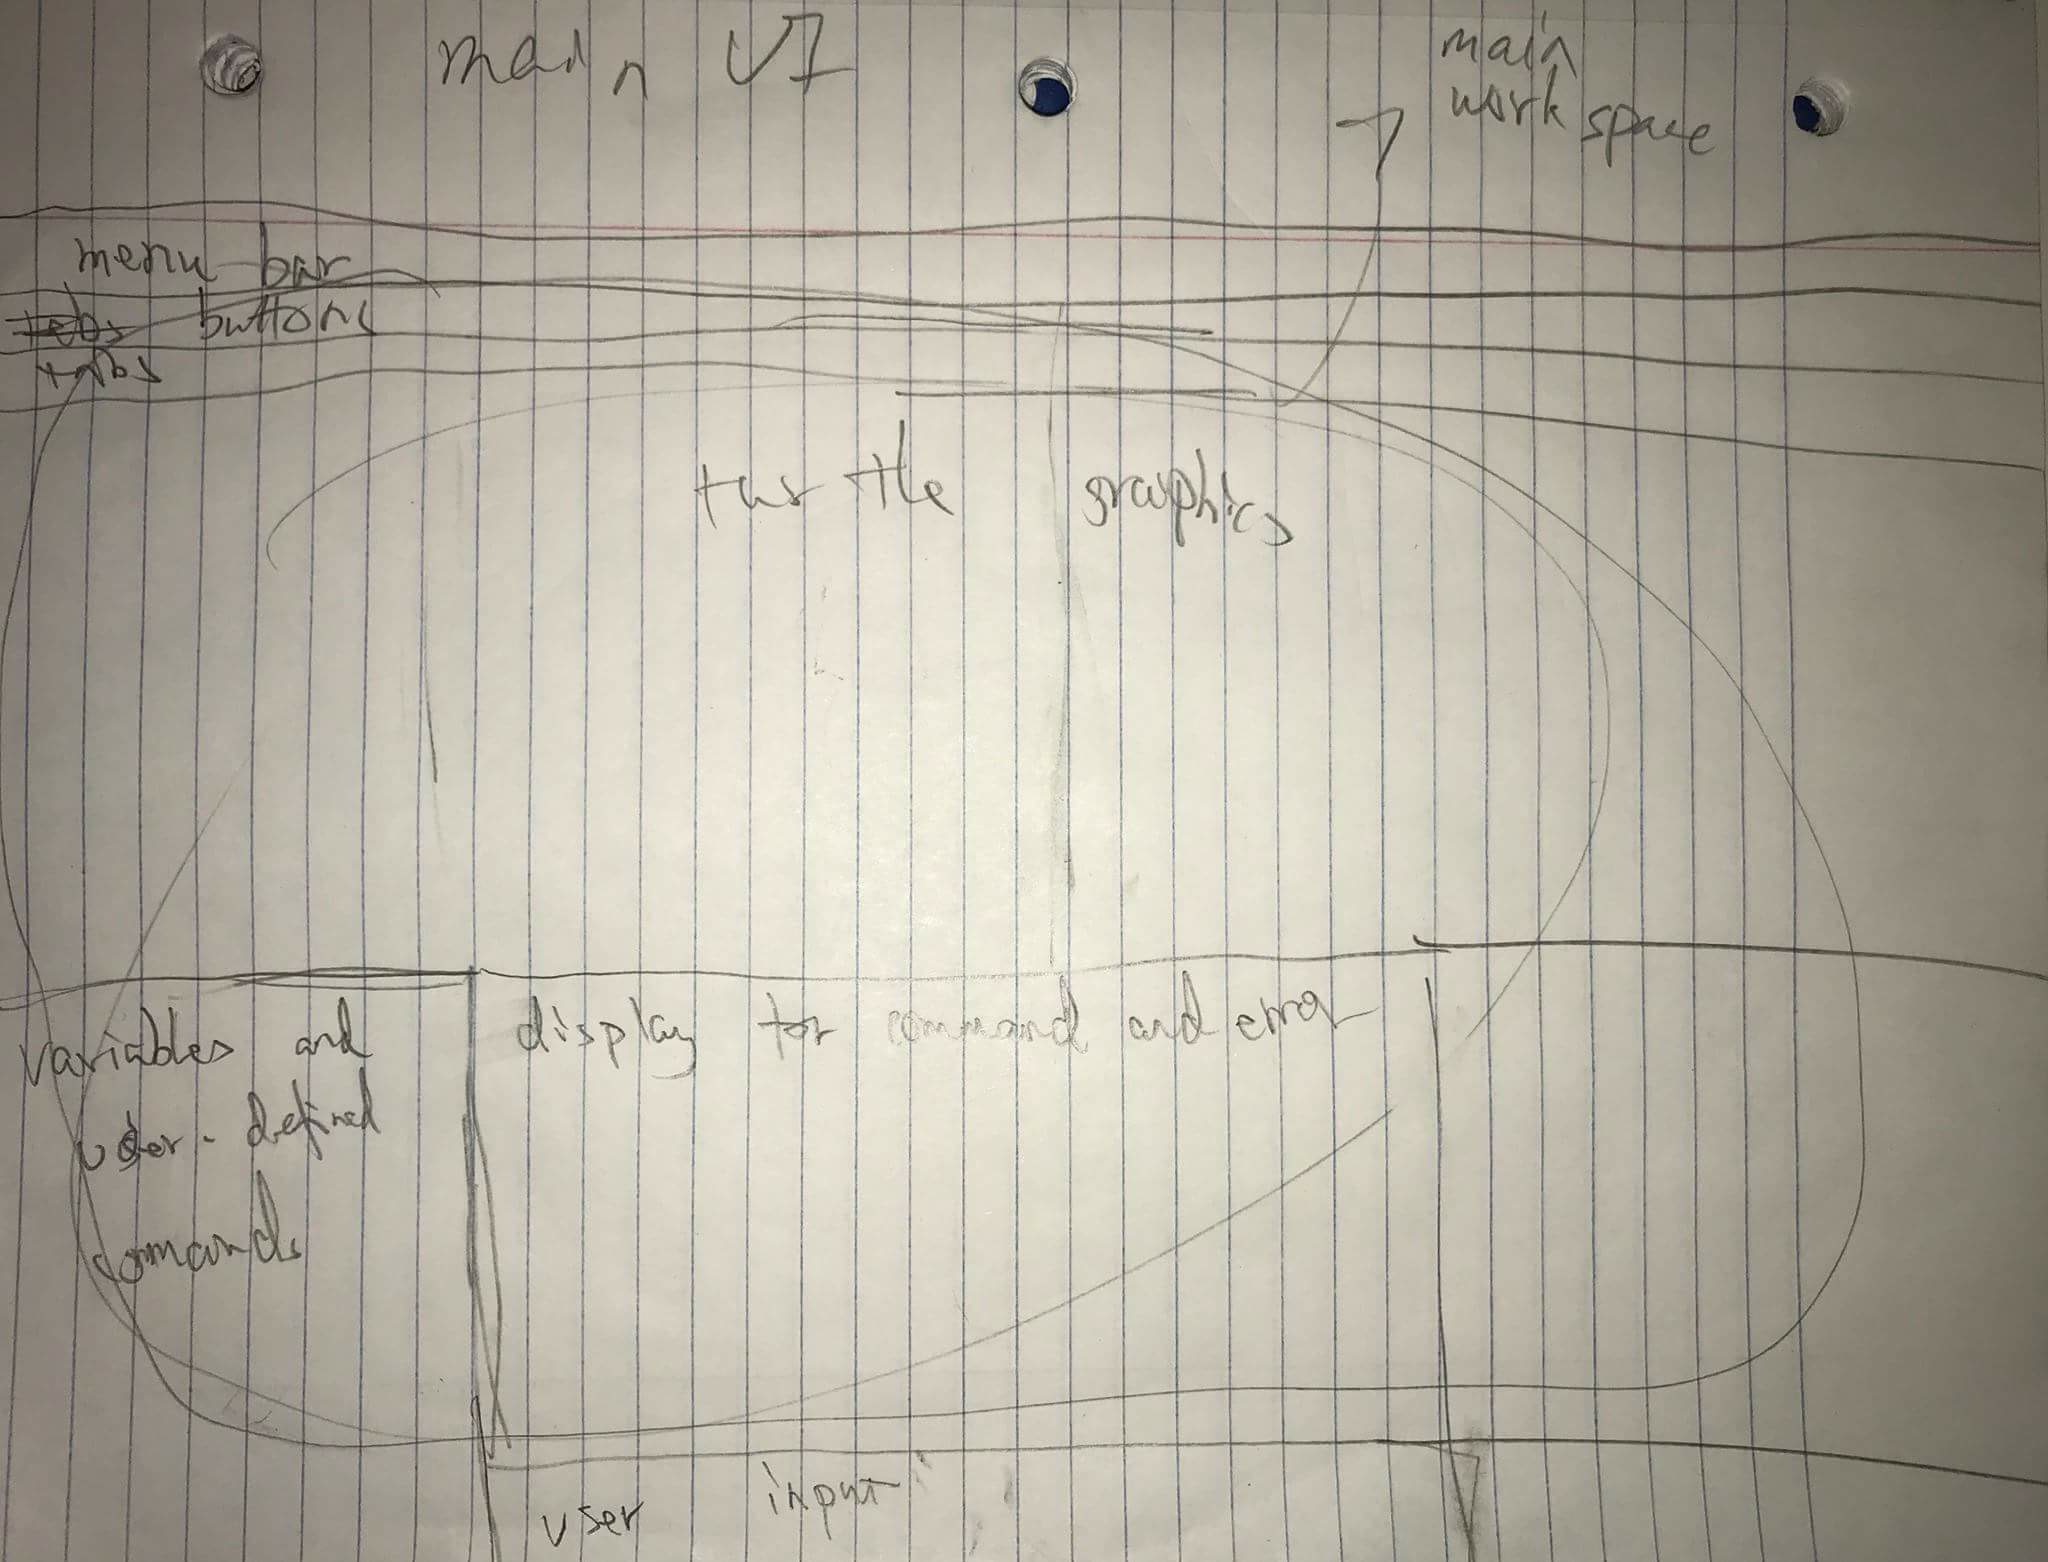 main UI
main
work space
menu bar
tabs buttons
tabs
turtle graphics
variables and
user-defined
commands
display for command and error
user input